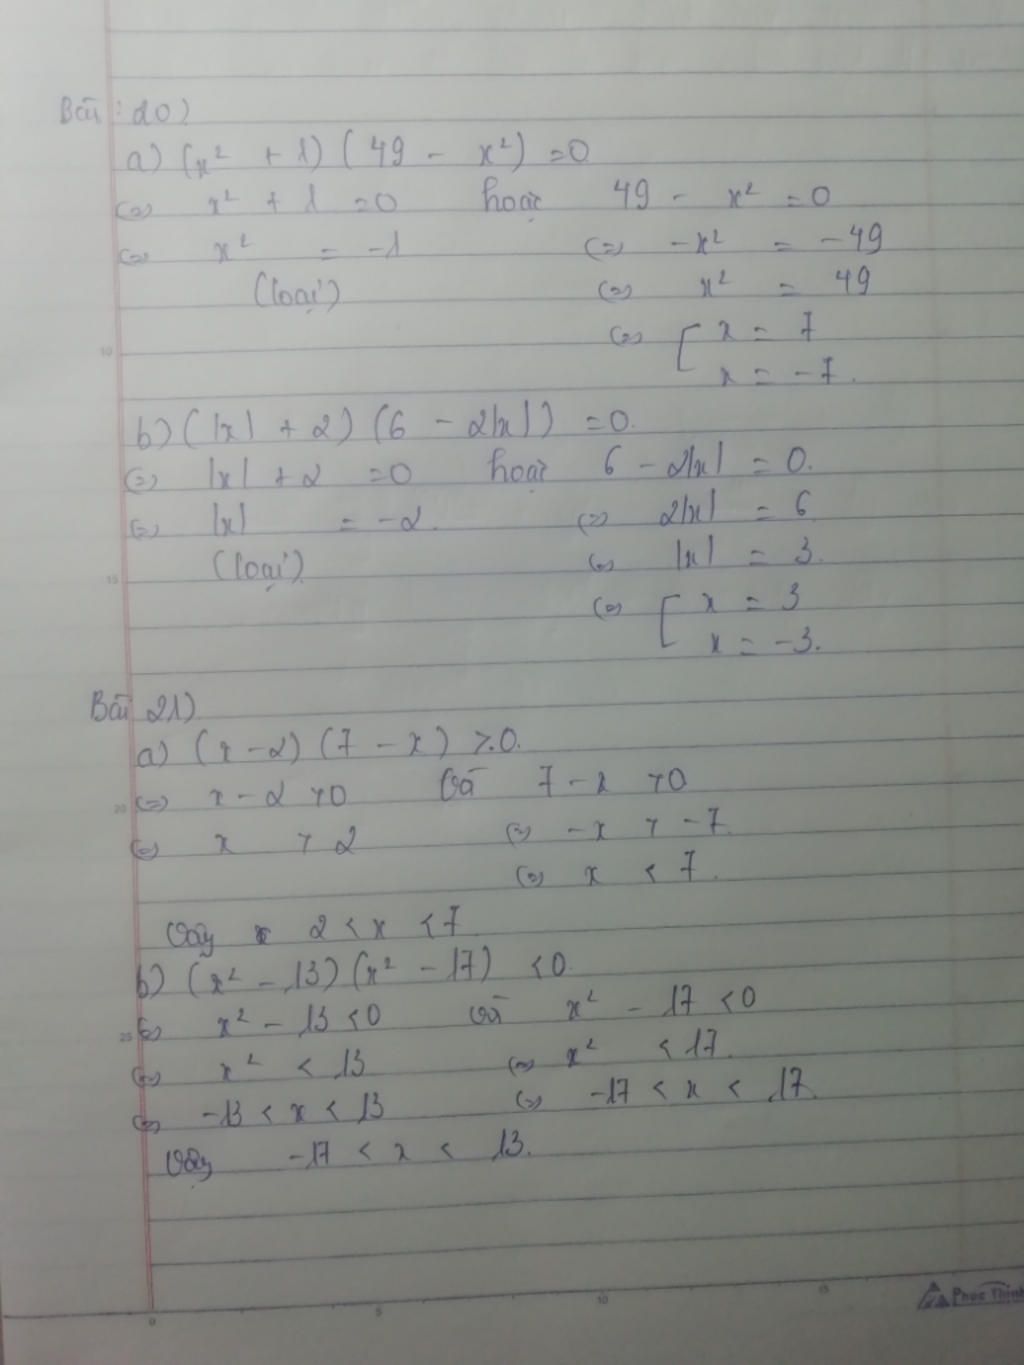 Bài : 20)
a) (x² + 1) (49 - x²) = 0
<=> x² + 1 = 0 hoặc 49 - x² = 0
<=> x² = -1 <=> -x² = -49
(loại) <=> x² = 49
<=> [ x = 7
x = -7.
b) (|x| + 2) (6 - 2|x|) = 0.
<=> |x| + 2 = 0 hoặc 6 - 2|x| = 0.
<=> |x| = -2. <=> 2|x| = 6
(loại) <=> |x| = 3.
<=> [ x = 3
x = -3.
Bài 21)
a) (x - 2) (7 - x) > 0.
<=> x - 2 > 0 Và 7 - x > 0
<=> x > 2 <=> -x > -7.
<=> x < 7.
Vậy 2 < x < 7
b) (x² - 13) (x² - 17) < 0.
<=> x² - 13 < 0 Và x² - 17 < 0
<=> x² < 13 <=> x² < 17.
<=> -13 < x < 13 <=> -17 < x < 17.
Vậy -17 < x < 13.
10
15
20
25
0 5 10 15
Phúc Thịnh